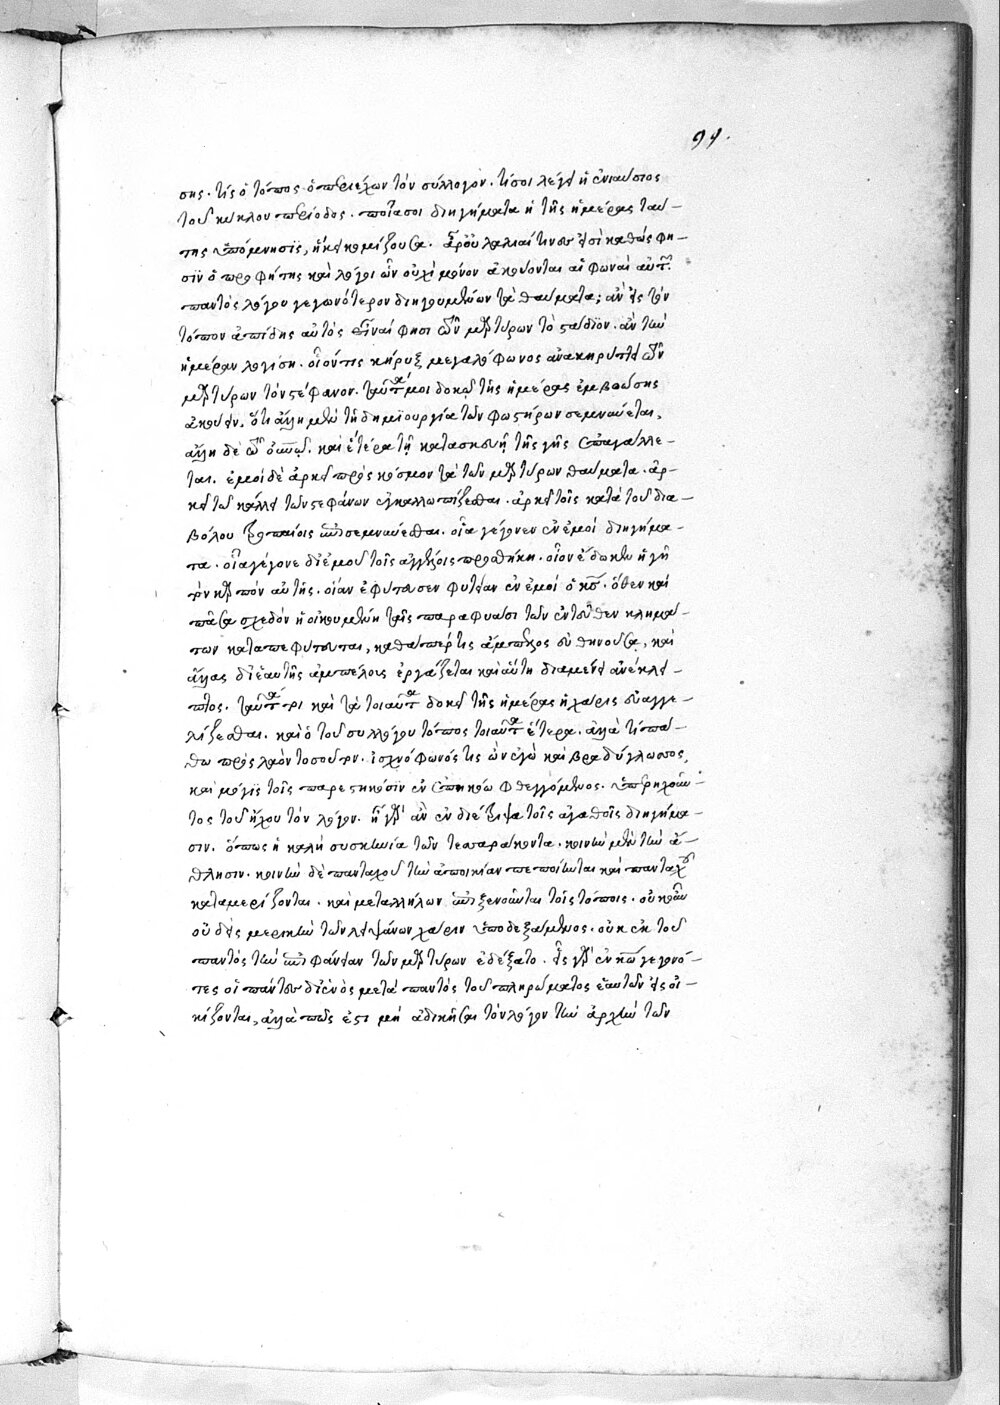 94.
σης. τίς ὁ τόπος ὁ περιέχων τὸν σύλλογον. τί σοι λέγει ἡ ἐνιαύσιος
τοῦ κύκλου περίοδος. ποῖά σοι διηγήματα ἡ τῆς ἡμέρας ταύ-
της ὑπόμνησις, ἥκει κομίζουσα. ἆρ' οὐ λαλιαί τινες εἰσὶ καθώς φη-
σὶν ὁ προφήτης καὶ λόγοι ὧν οὐχὶ μόνον ἀκούονται αἱ φωναὶ αὐτῶν.
παντὸς λόγου γεγωνότερον διηγουμένων τὰ θαύματα; ἂν εἰς τὸν
τόπον ἀπίδῃς αὐτὸς εἶναί φησι τῶν μαρτύρων τὸ στάδιον. ἂν τὴν
ἡμέραν λογίσῃ. οἷόν τις κήρυξ μεγαλόφωνος ἀνακηρύττει τῶν
μαρτύρων τὸν στέφανον. ταῦτά μοι δοκῶ τῆς ἡμέρας ἐμβοώσης
ἀκούειν. ὅτι ἄλλη μὲν τῇ δημιουργίᾳ τῶν φωστήρων σεμνύεται,
ἄλλη δὲ τῶν οὐρανῶν. καὶ ἑτέρα τῇ κατασκευῇ τῆς γῆς ἐπαγάλλε-
ται. ἐμοὶ δὲ ἀρκεῖ πρὸς κόσμον τὰ τῶν μαρτύρων θαύματα. ἀρ-
κεῖ τῷ κάλλει τῶν στεφάνων ἐγκαλλωπίζεσθαι. ἀρκεῖ τοῖς κατὰ τοῦ δια-
βόλου τροπαίοις ἐπισεμνύεσθαι. οἷα γέγονεν ἐν ἐμοὶ διηγήμα-
τα. οἷα γέγονε δι' ἐμοῦ τοῖς ἀγγέλοις προσθήκη. οἷον ἔδωκεν ἡ γῆ
τὸν καρπὸν αὐτῆς. οἵαν ἐφύτευσεν φυτείαν ἐν ἐμοὶ ὁ κς. ὅθεν καὶ
πᾶσα σχεδὸν ἡ οἰκουμένη ταῖς παραφυάσι τῶν ἐντεῦθεν κλημά-
των καταπεφύτευται, καθάπερ τις ἄμπελος εὐθηνοῦσα, καὶ
ἄλλας δι' ἑαυτῆς ἀμπέλους ἐργάζεται καὶ αὕτη διαμένει ἀνέκλει-
πτος. ταῦτά τοι καὶ τὰ τοιαῦτα δοκεῖ τῆς ἡμέρας ἡ χάρις εὐαγγε-
λίζεσθαι. καὶ ὁ τοῦ συλλόγου τόπος τοιαῦτα ἕτερα. ἀλλὰ τί πά-
θω πρὸς λαὸν τοσοῦτον. ἰσχνόφωνός τις ὢν ἐγὼ καὶ βραδύγλωσσος,
καὶ μόγις τοῖς παρεστηκόσιν ἐν ἐπηκόῳ φθεγγόμενος. ὑπερηχοῦν-
τος τοῦ ἤχου τὸν λόγον. ἦ γὰρ ἂν ἐνδιέτριψα τοῖς ἀγαθοῖς διηγήμα-
σιν. ὅπως ἡ καλὴ συσκηνία τῶν τεσσαράκοντα. κοινὴν μὲν τὴν ἄ-
θλησιν. κοινὴν δὲ πανταχοῦ τὴν ἀποικίαν πεποίηνται καὶ πανταχοῦ
καταμερίζονται. καὶ μεταλλήλων ἐπιξενοῦνται τοῖς τόποις. οὐκοῦν
οὐδεὶς μερικὴν τῶν λειψάνων χάριν ὑποδεξάμενος. οὐκ ἐκ τοῦ
παντὸς τὴν ἐπιφάνειαν τῶν μαρτύρων ἐδέξατο. εἷς γὰρ ἐν κῷ γεγονό-
τες οἱ πάντες δι' ἑνὸς μετὰ παντὸς τοῦ πληρώματος ἑαυτῶν εἰσοι-
κίζονται, ἀλλὰ πῶς ἐστι μὴ ἀδικῆσαι τὸν λόγον τὴν ἀρχὴν τῶν